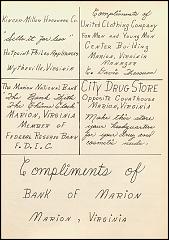 Kincer-Miller Hardware Co.
"Sells it for less"
Hotpoint Philco Appliances
Wytheville, Virginia
Compliments of
United Clothing Company
For Men and Young Men
Center Building
Marion, Virginia
Manager
The Marion National Bank
"The Bank With
The Chime Clock"
Marion, Virginia
Member of
Federal Reserve Bank
F. D. I. C.
City Drug Store
Opposite Courthouse
Marion, Virginia
Make this store
your headquarters
for your drug and
cosmetic needs.
Compliments of
Bank of Marion
Marion, Virginia